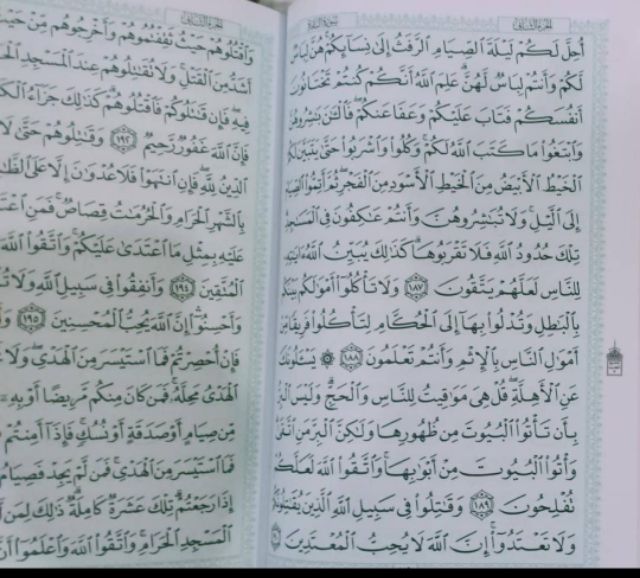 الجزء الثاني سورة البقرة
أُحِلَّ لَكُمْ لَيْلَةَ ٱلصِّيَامِ ٱلرَّفَثُ إِلَىٰ نِسَآئِكُمْ هُنَّ لِبَاسٌ
لَّكُمْ وَأَنتُمْ لِبَاسٌ لَّهُنَّ عَلِمَ ٱللَّهُ أَنَّكُمْ كُنتُمْ تَخْتَانُونَ
أَنفُسَكُمْ فَتَابَ عَلَيْكُمْ وَعَفَا عَنكُمْ فَٱلْـَٰٔنَ بَٰشِرُوهُنَّ
وَٱبْتَغُوا۟ مَا كَتَبَ ٱللَّهُ لَكُمْ وَكُلُوا۟ وَٱشْرَبُوا۟ حَتَّىٰ يَتَبَيَّنَ لَكُمُ
ٱلْخَيْطُ ٱلْأَبْيَضُ مِنَ ٱلْخَيْطِ ٱلْأَسْوَدِ مِنَ ٱلْفَجْرِ ثُمَّ أَتِمُّوا۟ ٱلصِّيَامَ
إِلَى ٱلَّيْلِ وَلَا تُبَٰشِرُوهُنَّ وَأَنتُمْ عَٰكِفُونَ فِى ٱلْمَسَٰجِدِ
تِلْكَ حُدُودُ ٱللَّهِ فَلَا تَقْرَبُوهَا كَذَٰلِكَ يُبَيِّنُ ٱللَّهُ ءَايَٰتِهِۦ
لِلنَّاسِ لَعَلَّهُمْ يَتَّقُونَ ١٨٧ وَلَا تَأْكُلُوٓا۟ أَمْوَٰلَكُم بَيْنَكُم
بِٱلْبَٰطِلِ وَتُدْلُوا۟ بِهَآ إِلَى ٱلْحُكَّامِ لِتَأْكُلُوا۟ فَرِيقًا مِّنْ
أَمْوَٰلِ ٱلنَّاسِ بِٱلْإِثْمِ وَأَنتُمْ تَعْلَمُونَ ١٨٨ ۞ يَسْـَٔلُونَكَ
عَنِ ٱلْأَهِلَّةِ قُلْ هِىَ مَوَٰقِيتُ لِلنَّاسِ وَٱلْحَجِّ وَلَيْسَ ٱلْبِرُّ
بِأَن تَأْتُوا۟ ٱلْبُيُوتَ مِن ظُهُورِهَا وَلَٰكِنَّ ٱلْبِرَّ مَنِ ٱتَّقَىٰ
وَأْتُوا۟ ٱلْبُيُوتَ مِنْ أَبْوَٰبِهَا وَٱتَّقُوا۟ ٱللَّهَ لَعَلَّكُمْ
تُفْلِحُونَ ١٨٩ وَقَٰتِلُوا۟ فِى سَبِيلِ ٱللَّهِ ٱلَّذِينَ يُقَٰتِلُونَكُمْ
وَلَا تَعْتَدُوٓا۟ إِنَّ ٱللَّهَ لَا يُحِبُّ ٱلْمُعْتَدِينَ
الجزء الثاني
وَٱقْتُلُوهُمْ حَيْثُ ثَقِفْتُمُوهُمْ وَأَخْرِجُوهُم مِّنْ حَيْثُ
أَشَدُّ مِنَ ٱلْقَتْلِ وَلَا تُقَٰتِلُوهُمْ عِندَ ٱلْمَسْجِدِ
فِيهِ فَإِن قَٰتَلُوكُمْ فَٱقْتُلُوهُمْ كَذَٰلِكَ جَزَآءُ
فَإِنَّ ٱللَّهَ غَفُورٌ رَّحِيمٌ ١٩٢ وَقَٰتِلُوهُمْ حَتَّىٰ لَا
ٱلدِّينُ لِلَّهِ فَإِنِ ٱنتَهَوْا۟ فَلَا عُدْوَٰنَ إِلَّا عَلَى
بِٱلشَّهْرِ ٱلْحَرَامِ وَٱلْحُرُمَٰتُ قِصَاصٌ فَمَنِ
عَلَيْهِ بِمِثْلِ مَا ٱعْتَدَىٰ عَلَيْكُمْ وَٱتَّقُوا۟ ٱللَّهَ
ٱلْمُتَّقِينَ ١٩٤ وَأَنفِقُوا۟ فِى سَبِيلِ ٱللَّهِ وَلَا
وَأَحْسِنُوٓا۟ إِنَّ ٱللَّهَ يُحِبُّ ٱلْمُحْسِنِينَ ١٩٥
فَإِنْ أُحْصِرْتُمْ فَمَا ٱسْتَيْسَرَ مِنَ ٱلْهَدْىِ وَلَا
ٱلْهَدْىُ مَحِلَّهُۥ فَمَن كَانَ مِنكُم مَّرِيضًا أَوْ بِهِۦٓ
مِّن صِيَامٍ أَوْ صَدَقَةٍ أَوْ نُسُكٍ فَإِذَآ أَمِنتُمْ
فَمَا ٱسْتَيْسَرَ مِنَ ٱلْهَدْىِ فَمَن لَّمْ يَجِدْ فَصِيَامُ
إِذَا رَجَعْتُمْ تِلْكَ عَشَرَةٌ كَامِلَةٌ ذَٰلِكَ لِمَن
ٱلْمَسْجِدِ ٱلْحَرَامِ وَٱتَّقُوا۟ ٱللَّهَ وَٱعْلَمُوٓا۟ أَنَّ